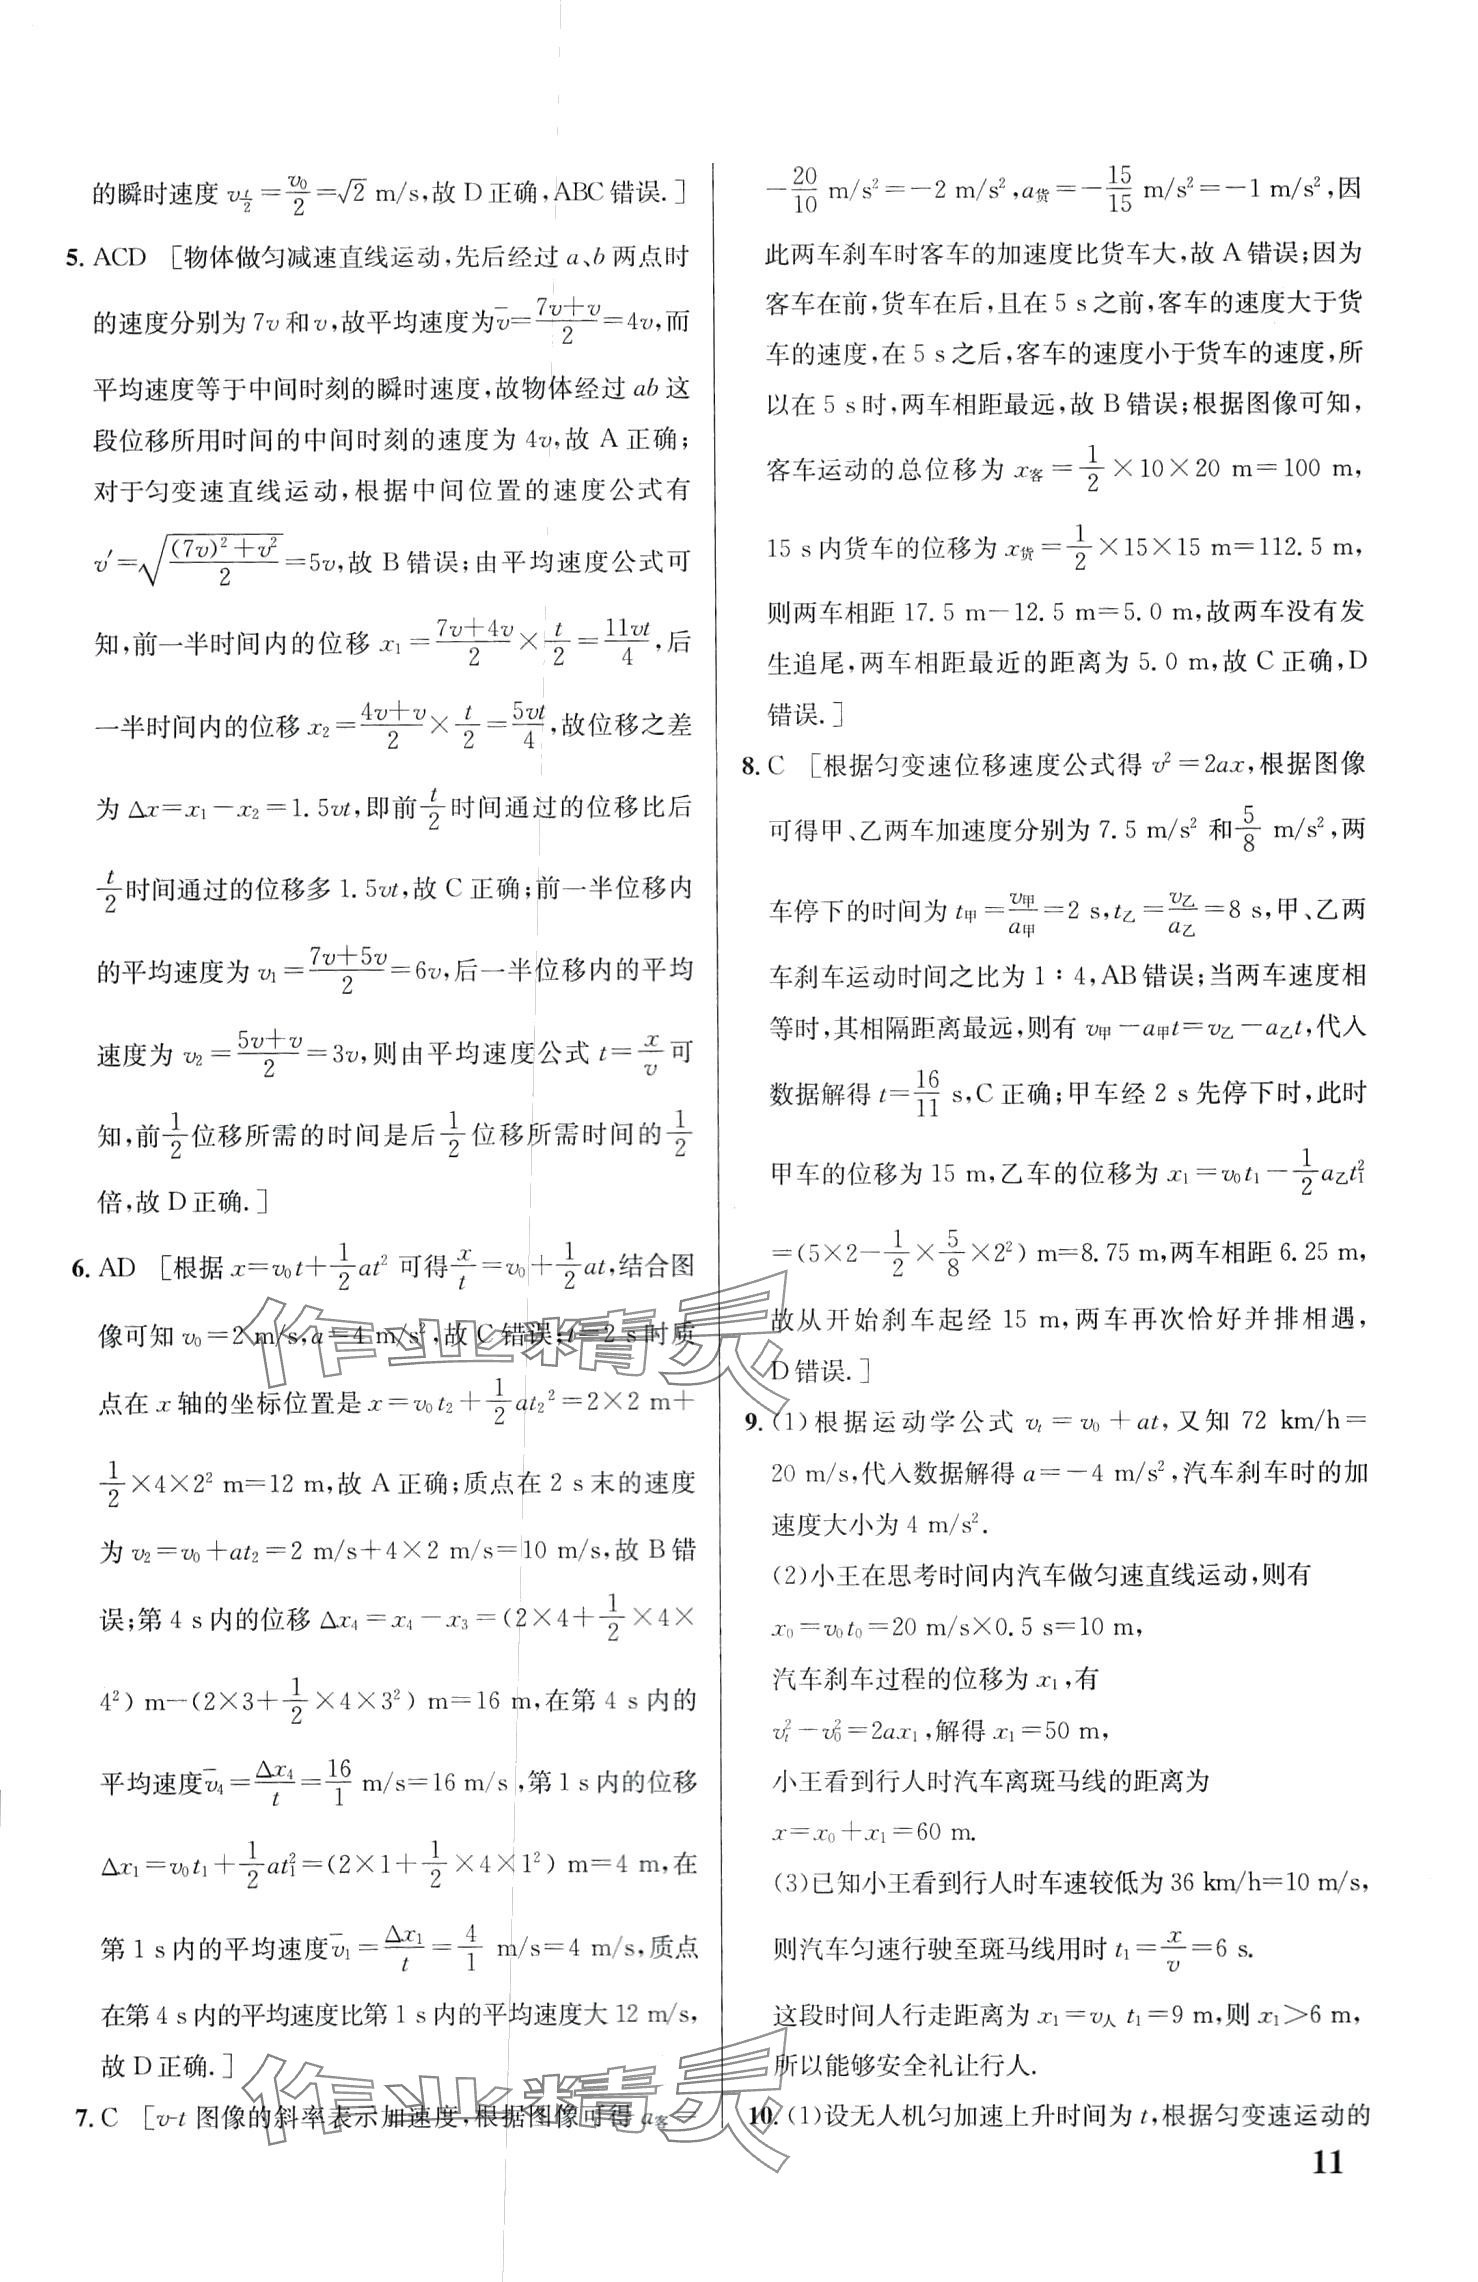 的瞬时速度 v_{t/2}=v₀/2=√2 m/s,故 D 正确,ABC 错误.]
5. ACD [物体做匀减速直线运动,先后经过 a、b 两点时
的速度分别为 7v 和 v,故平均速度为v̄=(7v+v)/2=4v,而
平均速度等于中间时刻的瞬时速度,故物体经过 ab 这
段位移所用时间的中间时刻的速度为 4v,故 A 正确;
对于匀变速直线运动,根据中间位置的速度公式有
v′=√(((7v)²+v²)/2)=5v,故 B 错误;由平均速度公式可
知,前一半时间内的位移 x₁=(7v+4v)/2×t/2=11vt/4,后
一半时间内的位移 x₂=(4v+v)/2×t/2=5vt/4,故位移之差
为 Δx=x₁-x₂=1.5vt,即前 t/2 时间通过的位移比后
t/2 时间通过的位移多 1.5vt,故 C 正确;前一半位移内
的平均速度为 v₁=(7v+5v)/2=6v,后一半位移内的平均
速度为 v₂=(5v+v)/2=3v,则由平均速度公式 t=x/v 可
知,前 1/2 位移所需的时间是后 1/2 位移所需时间的 1/2
倍,故 D 正确.]
6. AD [根据 x=v₀t+1/2at² 可得 x/t=v₀+1/2at,结合图
像可知 v₀=2 m/s,a=4 m/s²,故 C 错误;t=2 s 时质
点在 x 轴的坐标位置是 x=v₀t₂+1/2at₂²=2×2 m+
1/2×4×2² m=12 m,故 A 正确;质点在 2 s 末的速度
为 v₂=v₀+at₂=2 m/s+4×2 m/s=10 m/s,故 B 错
误;第 4 s 内的位移 Δx₄=x₄-x₃=(2×4+1/2×4×
4²) m-(2×3+1/2×4×3²) m=16 m,在第 4 s 内的
平均速度v̄₄=Δx₄/t=16/1 m/s=16 m/s,第 1 s 内的位移
Δx₁=v₀t₁+1/2at₁²=(2×1+1/2×4×1²) m=4 m,在
第 1 s 内的平均速度v̄₁=Δx₁/t=4/1 m/s=4 m/s,质点
在第 4 s 内的平均速度比第 1 s 内的平均速度大 12 m/s,
故 D 正确.]
7. C [v-t 图像的斜率表示加速度,根据图像可得 a客=
-20/10 m/s²=-2 m/s²,a货=-15/15 m/s²=-1 m/s²,因
此两车刹车时客车的加速度比货车大,故 A 错误;因为
客车在前,货车在后,且在 5 s 之前,客车的速度大于货
车的速度,在 5 s 之后,客车的速度小于货车的速度,所
以在 5 s 时,两车相距最远,故 B 错误;根据图像可知,
客车运动的总位移为 x客=1/2×10×20 m=100 m,
15 s 内货车的位移为 x货=1/2×15×15 m=112.5 m,
则两车相距 17.5 m-12.5 m=5.0 m,故两车没有发
生追尾,两车相距最近的距离为 5.0 m,故 C 正确,D
错误.]
8. C [根据匀变速位移速度公式得 v²=2ax,根据图像
可得甲、乙两车加速度分别为 7.5 m/s² 和 5/8 m/s²,两
车停下的时间为 t甲=v甲/a甲=2 s,t乙=v乙/a乙=8 s,甲、乙两
车刹车运动时间之比为 1∶4,AB 错误;当两车速度相
等时,其相隔距离最远,则有 v甲-a甲t=v乙-a乙t,代入
数据解得 t=16/11 s,C 正确;甲车经 2 s 先停下时,此时
甲车的位移为 15 m,乙车的位移为 x₁=v₀t₁-1/2a乙t₁²
=(5×2-1/2×5/8×2²) m=8.75 m,两车相距 6.25 m,
故从开始刹车起经 15 m,两车再次恰好并排相遇,
D 错误.]
9. (1)根据运动学公式 vₜ=v₀+at,又知 72 km/h=
20 m/s,代入数据解得 a=-4 m/s²,汽车刹车时的加
速度大小为 4 m/s².
(2)小王在思考时间内汽车做匀速直线运动,则有
x₀=v₀t₀=20 m/s×0.5 s=10 m,
汽车刹车过程的位移为 x₁,有
vₜ²-v₀²=2ax₁,解得 x₁=50 m,
小王看到行人时汽车离斑马线的距离为
x=x₀+x₁=60 m.
(3)已知小王看到行人时车速较低为 36 km/h=10 m/s,
则汽车匀速行驶至斑马线用时 t₁=x/v=6 s.
这段时间人行走距离为 x₁=v人 t₁=9 m,则 x₁>6 m,
所以能够安全礼让行人.
10. (1)设无人机匀加速上升时间为 t,根据匀变速运动的
11
作业精灵
作业精灵